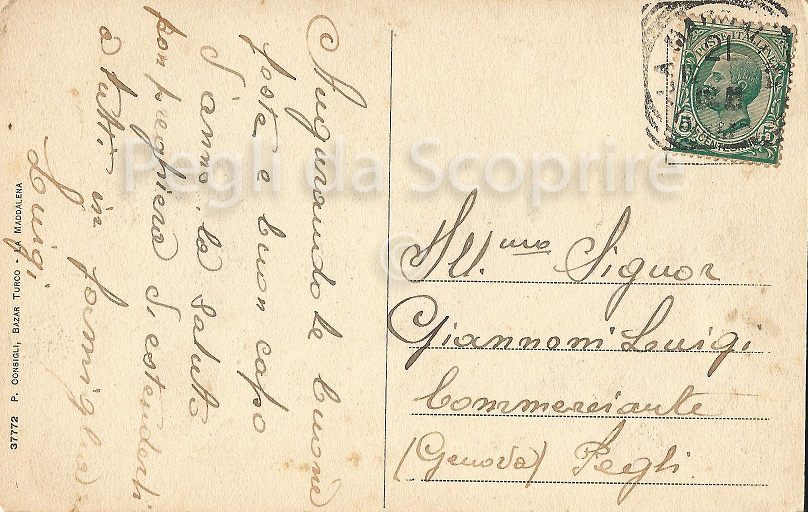 Augurandole buone
feste e buon capo
d'anno, la saluto
con preghiera d'estenderli
a tutti in famiglia
Luigi
37772 P. CONSIGLI, BAZAR TURCO - LA MADDALENA
Pegli da Scoprire
©
POSTE ITALIANE
5 CENTESIMI 5
Ill.mo Signor
Giannoni Luigi
Commerciante
(Genova) Pegli